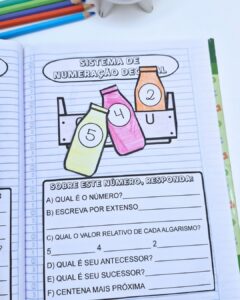 SISTEMA DE
NUMERAÇÃO DECIMAL
2
4
5
U
SOBRE ESTE NÚMERO, RESPONDA:
A) QUAL É O NÚMERO?
B) ESCREVA POR EXTENSO
C) QUAL O VALOR RELATIVO DE CADA ALGARISMO?
5 4 2
D) QUAL É SEU ANTECESSOR?
E) QUAL É SEU SUCESSOR?
F) CENTENA MAIS PRÓXIMA